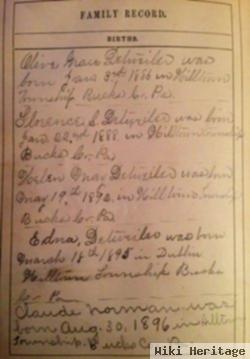 FAMILY RECORD.
BIRTHS.
Olive Grace Detweiler was
born Jan 3rd 1886 in Hilltown
Township Bucks Co. Pa.
Florence S Detweiler was born
Jan 22nd 1888. in Hilltown Township
Bucks Co. Pa
Helen May Detweiler was born
May 19th 1892, in Hilltown Township
Bucks Co. Pa
Edna, Detweiler was born
March 18th 1895 in Dublin
Hilltown Township Bucks
Co. Pa
Claude Norman was
born Aug. 30, 1896 in Hilltown
Township. Bucks Co. Pa
Wiki Heritage